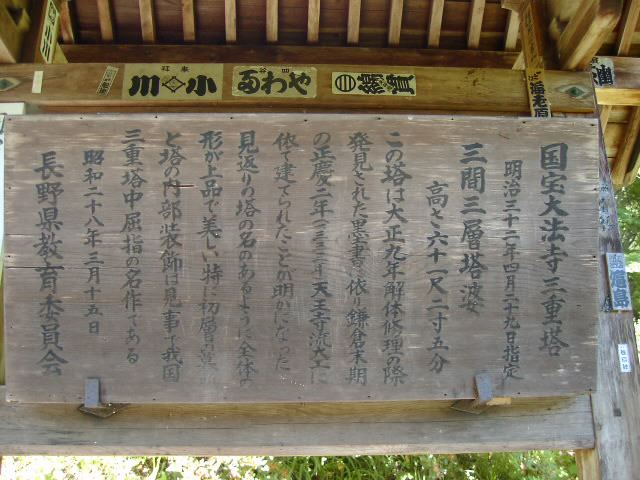 国宝大法寺三重塔
明治三十二年四月二十九日指定
三間三層塔婆
高さ六十一尺二寸五分
この塔は大正九年解体修理の際
発見された墨書に依り鎌倉末期
の正慶二年(一三三三年)天王寺流大工に
依て建てられたことが明かになった
見返りの塔の名のあるように全体の
形が上品で美しい特に初層の
と塔の内部装飾は見事で我国
三重塔中屈指の名作である
昭和二十八年三月十五日
長野県教育委員会
小川
四谷
やわた